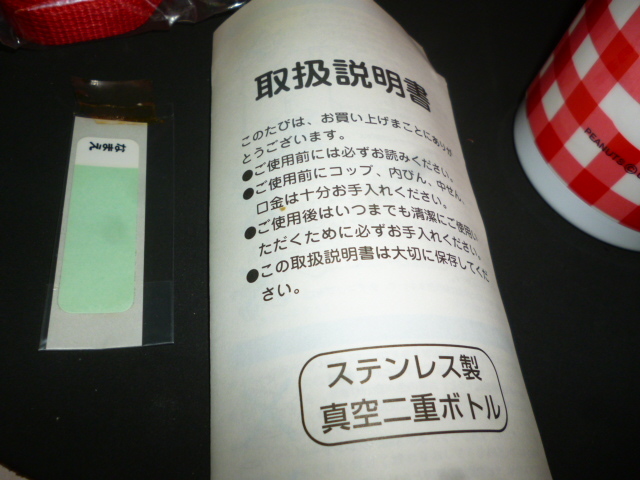 取扱説明書
このたびは、お買い上げまことにありが
とうございます。
●ご使用前には必ずお読みください。
●ご使用前にコップ、内びん、中せん、
口金は十分お手入れください。
●ご使用後はいつまでも清潔にご使用い
ただくために必ずお手入れください。
●この取扱説明書は大切に保存してくだ
さい。
ステンレス製
真空二重ボトル
なまえ
PEANUTS